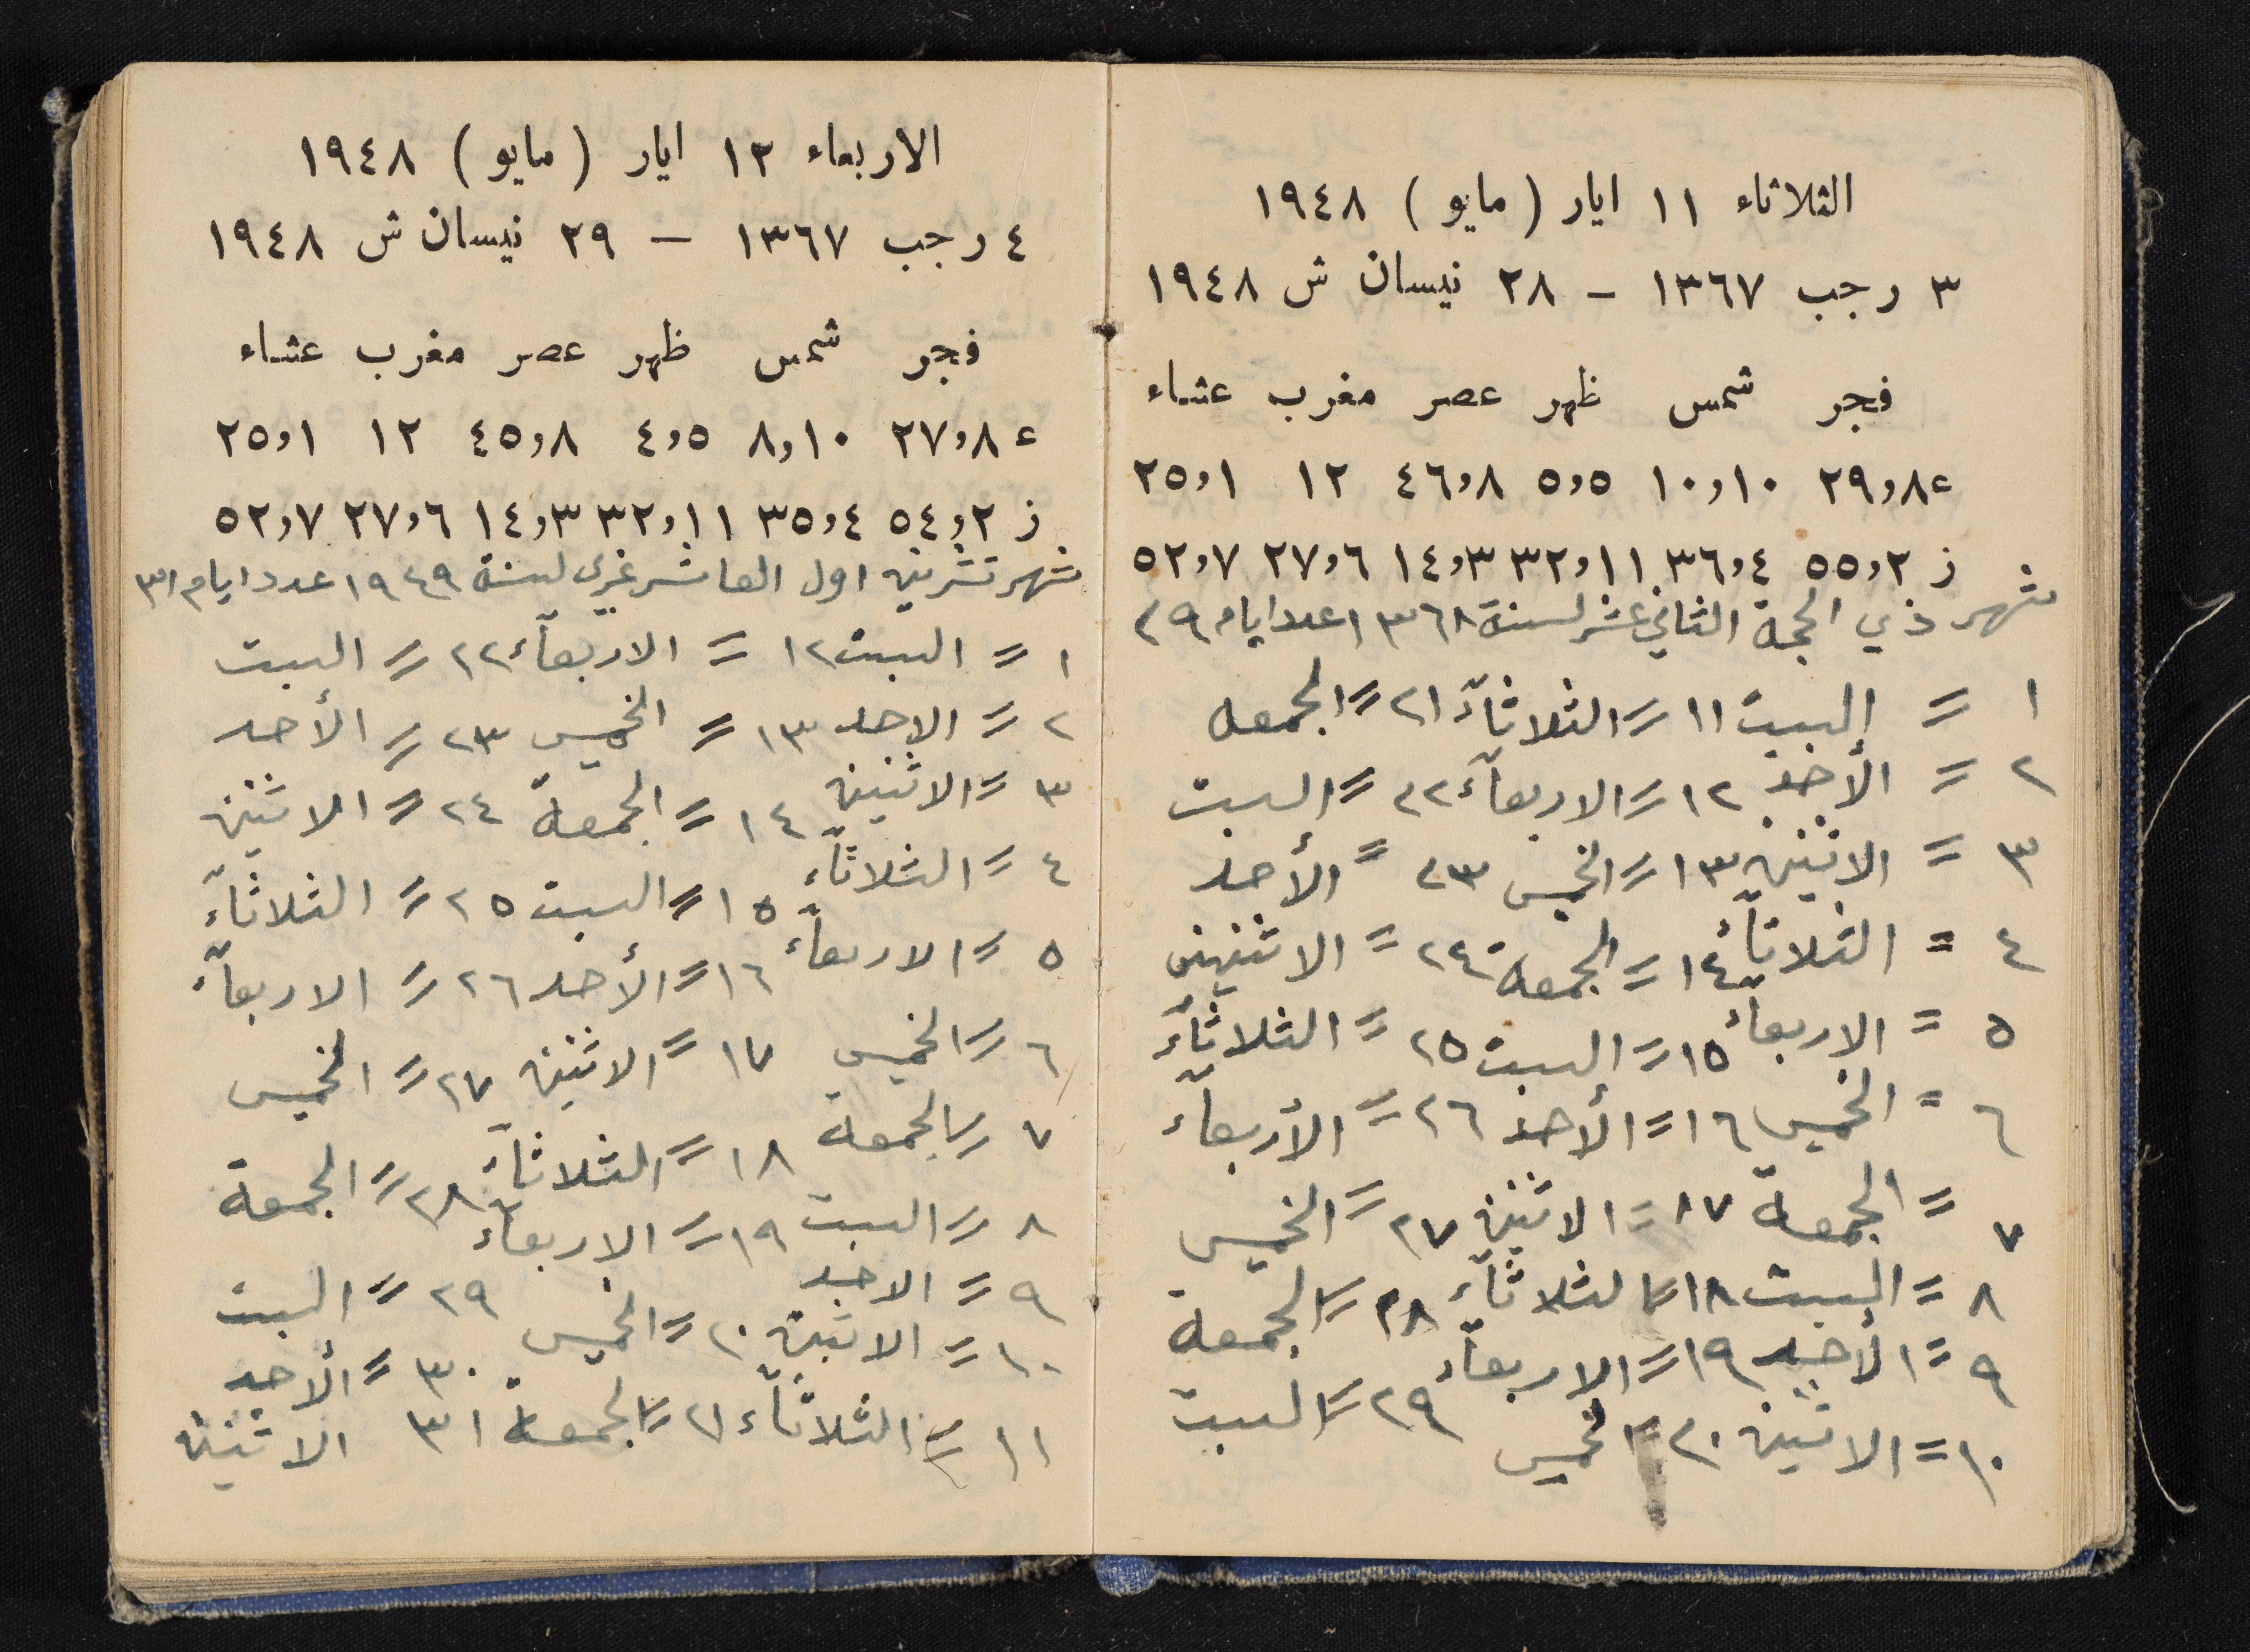 الثلاثاء ١١ ايار (مايو) ١٩٤٨
٣ رجب ١٣٦٧ - ٢٨ نيسان ش ١٩٤٨
فجر شمس ظهر عصر مغرب عشاء
ع ٢٩,٨ ١٠,١٠ ٥,٥ ٤٦,٨ ١٢ ٢٥,١
ز ٥٥,٢ ٣٦,٤ ٣٢,١١ ١٤,٣ ٢٧,٦ ٥٢,٧
شهر ذي الحجة الثاني عشر لسنة ١٣٦٨ عدد ايام ٢٩
١ = السبت ١١ = الثلاثآء ٢١ = الجمعه
٢ = الأحد ١٢ = الاربعآء ٢٢ = السبت
٣ = الاثنين ١٣ = الخميس ٢٣ = الأحد
٤ = الثلاثآء ١٤ = الجمعة ٢٤ = الاثنين
٥ = الاربعآء ١٥ = السبت ٢٥ = الثلاثآء
٦ = الخميس ١٦ = الأحد ٢٦ = الأربعآء
٧ = الجمعة ١٧ = الاثنين ٢٧ = الخميس
٨ = السبت ١٨ = الثلاثآء ٢٨ = الجمعة
٩ = الأحد ١٩ = الاربعآء ٢٩ = السبت
١٠ = الاثنين ٢٠ = الخميس
الاربعاء ١٢ ايار (مايو) ١٩٤٨
٤ رجب ١٣٦٧ - ٢٩ نيسان ش ١٩٤٨
فجر شمس ظهر عصر مغرب عشاء
ع ٢٧,٨ ٨,١٠ ٤,٥ ٤٥,٨ ١٢ ٢٥,١
ز ٥٤,٢ ٣٥,٤ ٣٢,١١ ١٤,٣ ٢٧,٦ ٥٢,٧
شهر تشرين اول العاشر غربي لسنة ١٩٤٩ عدد ايام ٣١
١ = السبت ١٢ = الاربعآء ٢٢ = السبت
٢ = الاحد ١٣ = الخميس ٢٣ = الأحد
٣ = الاثنين ١٤ = الجمعة ٢٤ = الاثنين
٤ = الثلاثآء ١٥ = السبت ٢٥ = الثلاثآء
٥ = الاربعآء ١٦ = الأحد ٢٦ = الاربعآء
٦ = الخميس ١٧ = الاثنين ٢٧ = الخميس
٧ = الجمعة ١٨ = الثلاثآء ٢٨ = الجمعة
٨ = السبت ١٩ = الاربعآء
٩ = الاحد ٢٠ = الخميس ٢٩ = السبت
١٠ = الاثنين ٣٠ = الأحد
١١ = الثلاثآء ٢١ = الجمعة ٣١ الاثنين